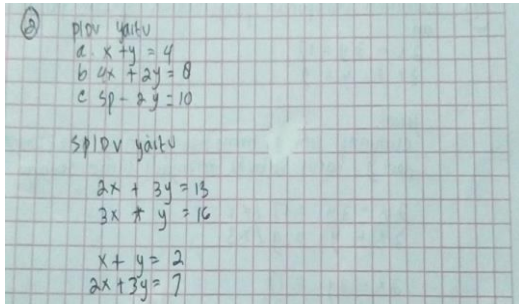 2 PLDV yaitu
a. x + y = 4
b 4x + 2y = 8
c 5p - 2y = 10
SPLDV yaitu
2x + 3y = 13
3x + y = 16
x + y = 2
2x + 3y = 7